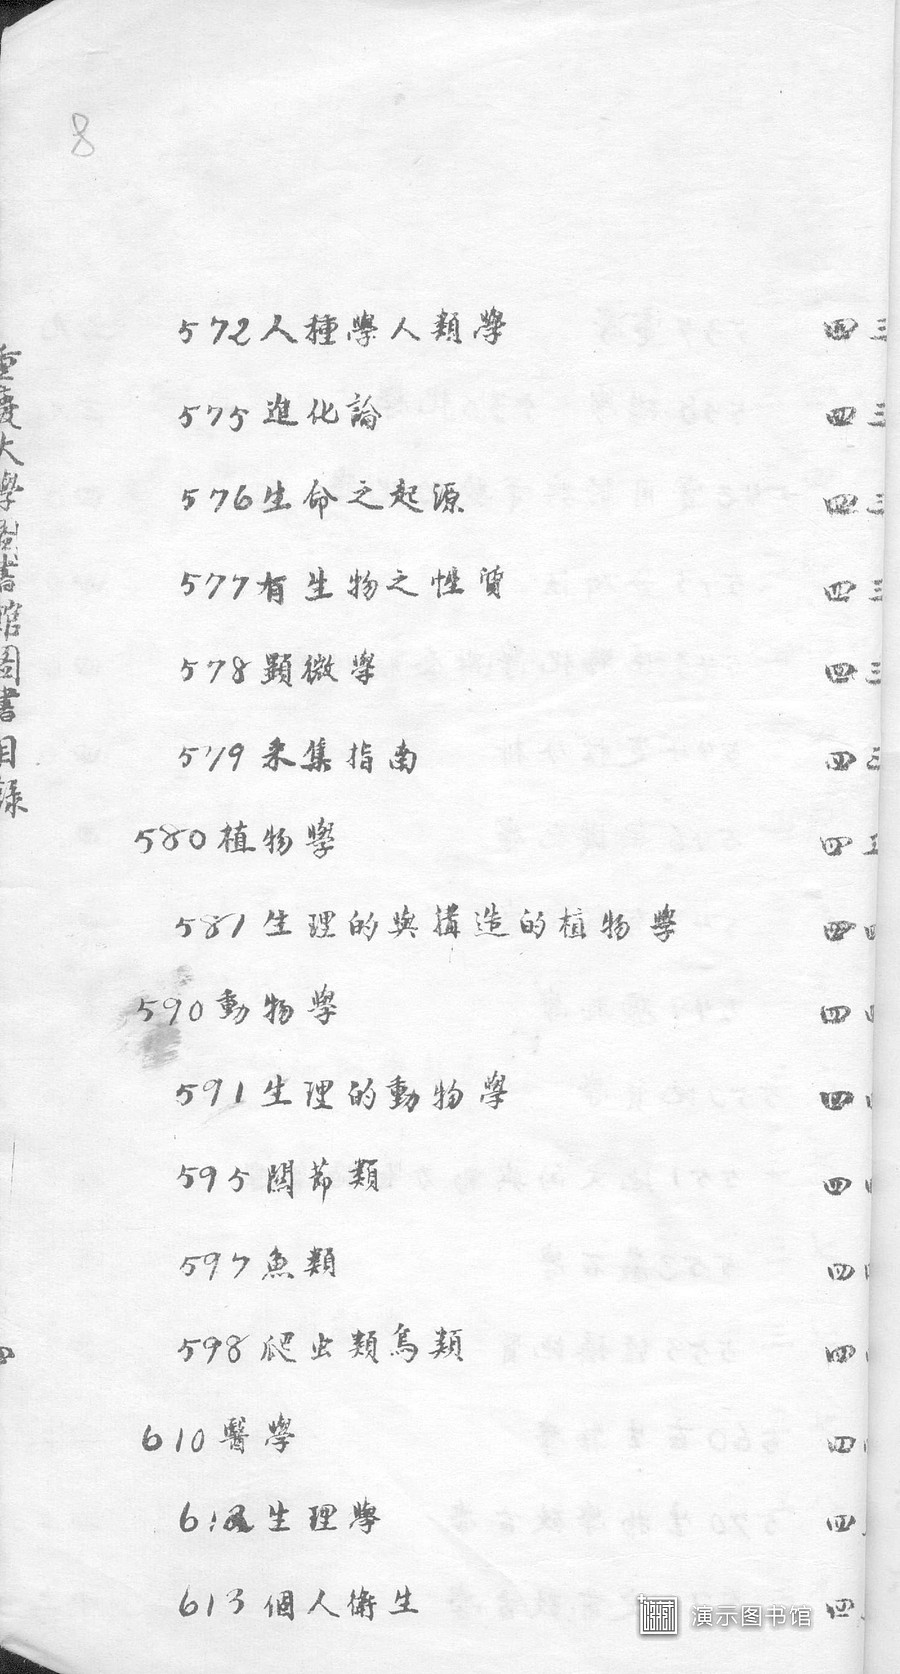 8
572人種學人類學 四三
575進化論 四三
576生命之起源 四三
577有生物之性質 四三
578顯微學 四三
579采集指南 四三
580植物學 四三
581生理的與構造的植物學 四四
590動物學 四
591生理的動物學 四
595關節類 四
597魚類 四
598爬虫類鳥類 四
610醫學 四
生理學 四
613個人衛生 四
重慶大學圖書館圖書目錄
四
演示图书馆